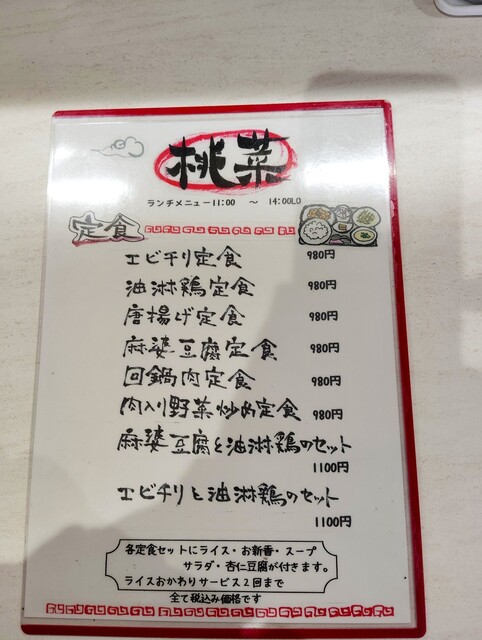 桃菜
ランチメニュー11:00 ～ 14:00LO
定食
エビチリ定食 980円
油淋鶏定食 980円
唐揚げ定食 980円
麻婆豆腐定食 980円
回鍋肉定食 980円
肉入り野菜炒め定食 980円
麻婆豆腐と油淋鶏のセット
1100円
エビチリと油淋鶏のセット
1100円
各定食セットにライス・お新香・スープ
サラダ・杏仁豆腐が付きます。
ライスおかわりサービス2回まで
全て税込み価格です